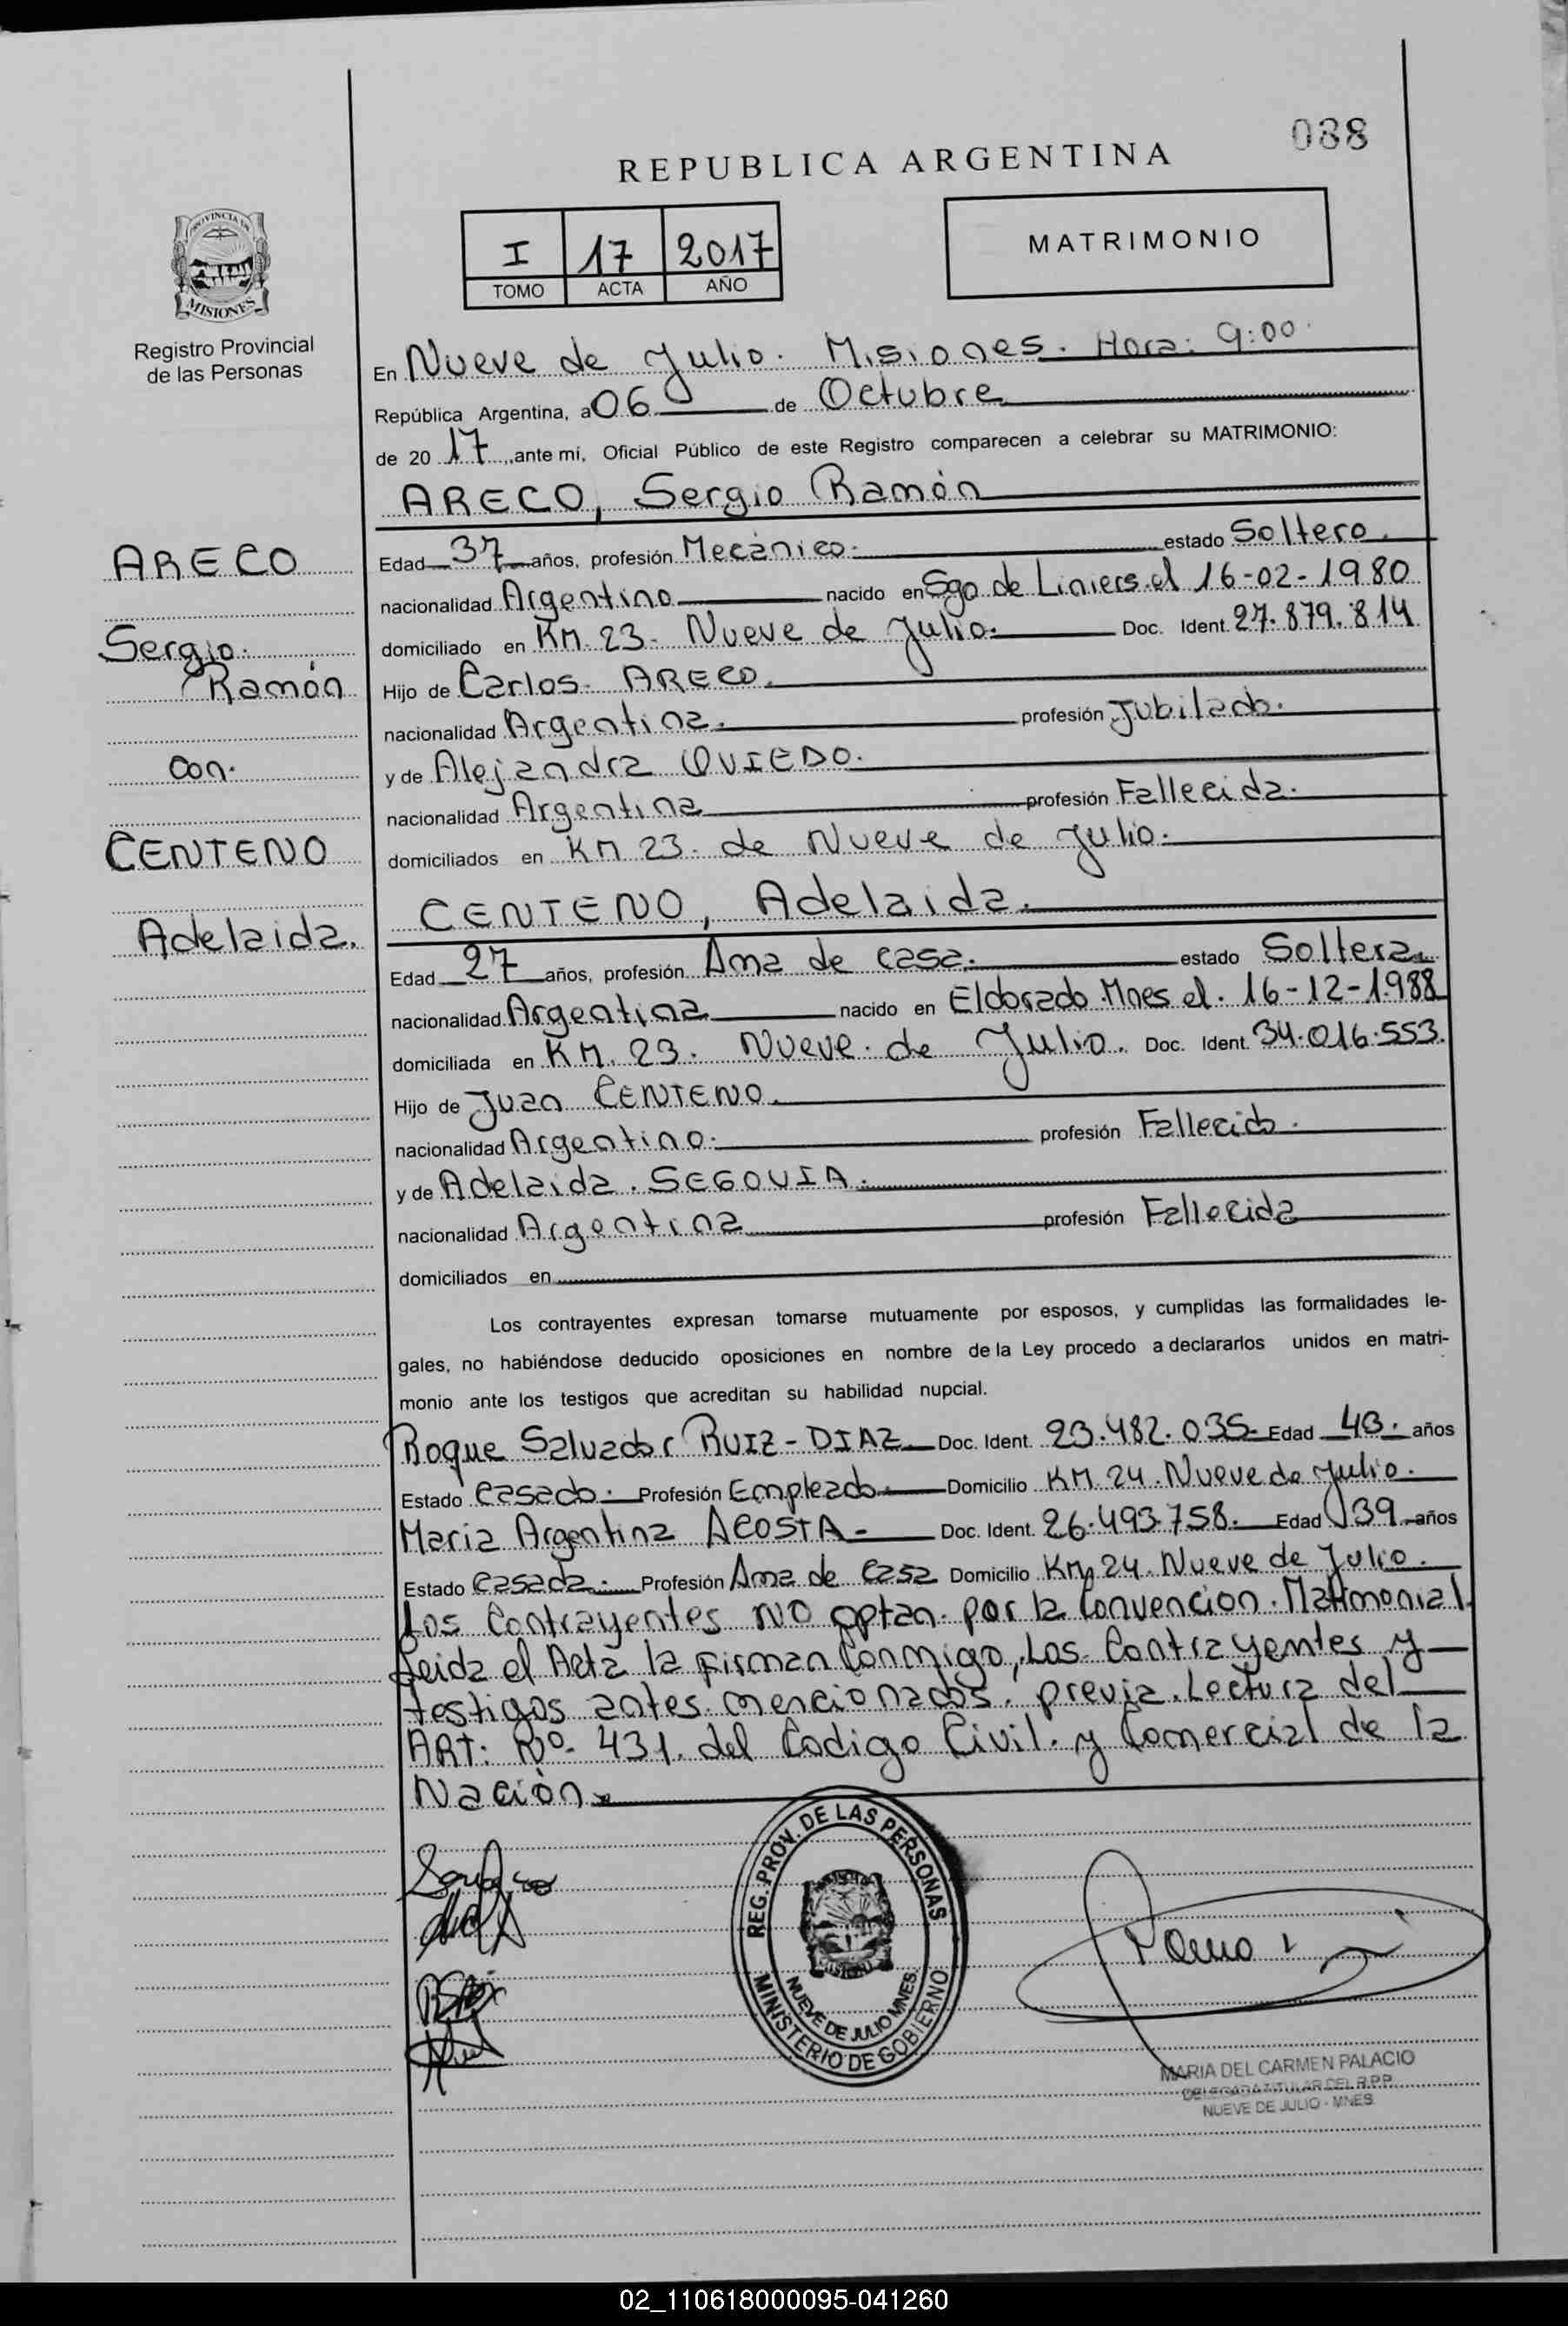 088
REPUBLICA ARGENTINA
I 17 2017
TOMO ACTA AÑO
MATRIMONIO
PROVINCIA DE
MISIONES
Registro Provincial
de las Personas
En Nueve de Julio. Misiones. Hora: 9:00.
República Argentina, a 06 de Octubre
de 20 17, ante mí, Oficial Público de este Registro comparecen a celebrar su MATRIMONIO:
ARECO, Sergio Ramón
ARECO
Sergio.
Ramón
con.
CENTENO
Adelaida.
Edad 37 años, profesión Mecánico. estado Soltero.
nacionalidad Argentino nacido en Sgo de Liniers el 16-02-1980
domiciliado en KM. 23. Nueve de Julio. Doc. Ident. 27.879.814
Hijo de Carlos ARECO.
nacionalidad Argentina. profesión Jubilado.
y de Alejandra OVIEDO.
nacionalidad Argentina profesión Fallecida.
domiciliados en KM 23. de Nueve de Julio.
CENTENO, Adelaida.
Edad 27 años, profesión Ama de casa. estado Soltera.
nacionalidad Argentina nacido en Eldorado Mnes el. 16-12-1988
domiciliada en KM. 23. Nueve. de Julio. Doc. Ident. 34.016.553.
Hijo de Juan CENTENO.
nacionalidad Argentino. profesión Fallecido.
y de Adelaida. SEGOVIA.
nacionalidad Argentina profesión Fallecida
domiciliados en
Los contrayentes expresan tomarse mutuamente por esposos, y cumplidas las formalidades le-
gales, no habiéndose deducido oposiciones en nombre de la Ley procedo a declararlos unidos en matri-
monio ante los testigos que acreditan su habilidad nupcial.
Roque Salvador RUIZ-DIAZ Doc. Ident. 23.482.035 Edad 43. años
Estado Casado. Profesión Empleado Domicilio KM. 24. Nueve de Julio.
Maria Argentina ACOSTA- Doc. Ident. 26.493.758. Edad 39 años
Estado Casada. Profesión Ama de Casa Domicilio KM 24. Nueve de Julio.
Los Contrayentes NO optan. por la Convencion. Matrimonial.
Leida el Acta la firman Conmigo, Los Contrayentes y
testigos antes mencionados. previa. Lectura del
ART: Nº 431. del Codigo Civil. y Comercial de la
Nación.
REG. PROV. DE LAS PERSONAS
NUEVE DE JULIO MNES.
MINISTERIO DE GOBIERNO
MARIA DEL CARMEN PALACIO
DELEGADA TITULAR DEL R.P.P.
NUEVE DE JULIO - MNES
02_110618000095-041260